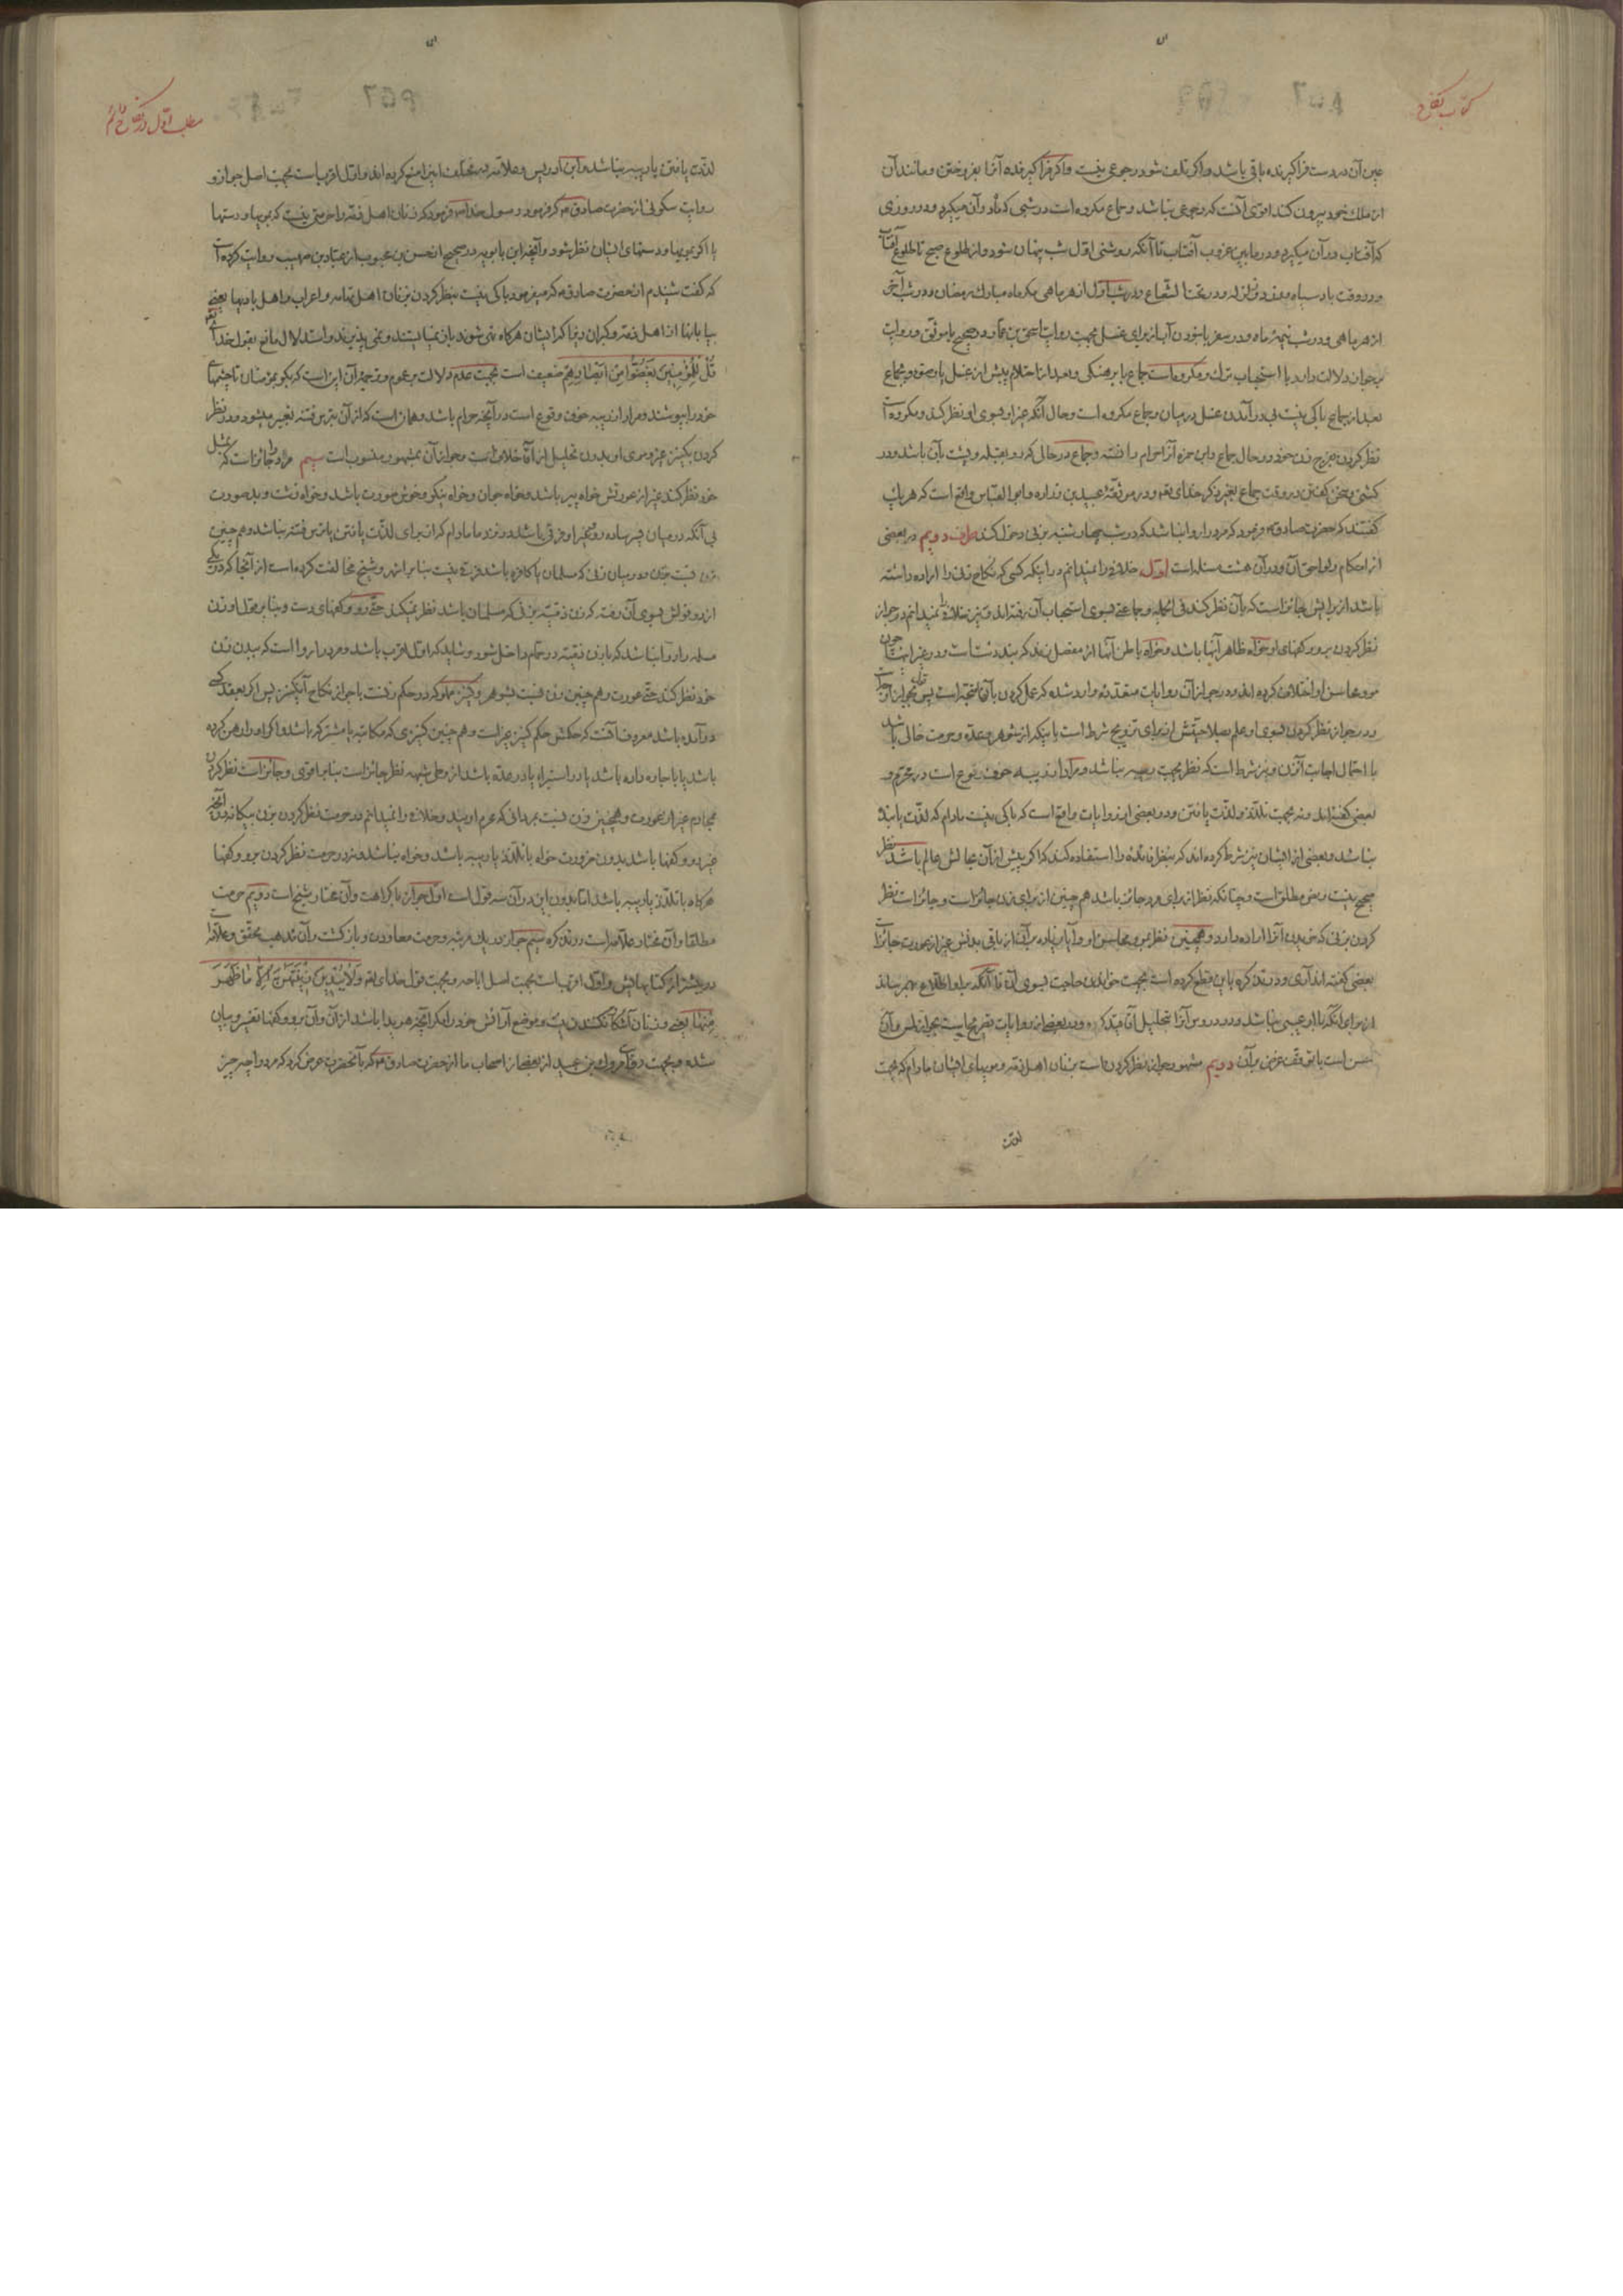 کتاب نکاح
عین آن در دست فراگیرنده باقی باشد و اگر تلف شود رجوعی نیست و اگر فراگیرنده آنرا بفروختن و مانند آن
از ملک خود بیرون کند اقوی آنست که رجوعی نباشد و جماع مکروه است در شبی که ماه در آن میگیرد و در روزی
که آفتاب در آن میگیرد و در ما بین غروب آفتاب تا آنکه روشنی اول شب پنهان شود و از طلوع صبح تا طلوع آفتاب
و در وقت باد سیاه و زرد و زلزله و در تحت الشعاع و در شب اول از هر ماهی مگر ماه مبارک رمضان و در شب آخر
از هر ماهی و در شب نیمهٔ ماه و در سفر با نبودن آب از برای غسل بجهت روایت اسحق بن عمار و در صحیح یا موثق و روایت
بر جواز دلالت دارد با استحباب ترک و مکروه است جماع با برهنگی و بعد از احتلام پیش از غسل یا وضو و جماع
بعد از جماع باکی نیست بی در آمدن غسل در میان و جماع مکروه است و حال آنکه غیر او بسوی او نظر کند و مکروه است
نظر کردن بفرج زن خود در حال جماع و ابن حمزه آنرا حرام دانسته و جماع در حالی که رو بقبله و پشت بآن باشد و در
کشتی و سخن گفتن در وقت جماع بغیر ذکر خدای تع و در موثقهٔ عبید بن زراره و ابو العباس واقع است که هر یک
گفتند که حضرت صادق ع فرمود که مرد را روا نباشد که در شب چهارشنبه بزنی دخول کند طرف دویم در بعضی
از احکام و لواحق آن و در آن هشت مسئله است اول خلافی را نمیدانم در اینکه کسی که نکاح زنی را اراده داشته
باشد از برایش جائز است که بآن نظر کند فی الجمله و جماعتی بسوی استحباب آن رفته اند و نیز خلافی نمیدانم در جواز
نظر کردن برو و کفهای او خواه ظاهر آنها باشد و خواه باطن آنها از مفصل زند که بند دست است و در غیر اینها چون
مو و محاسن او اختلاف کرده اند و در جواز آن روایات متعدده وارد شده که عمل کردن بآنها متجه است پس قول بجواز
و در جواز نظر کردن بسوی او علم بصلاحیتش از برای تزویج شرط است باینکه از شوهر و عده و حرمت خالی باشد
با احتمال اجابت آنزن و نیز شرط است که نظر بجهت ریبه نباشد و مراد از ریبه خوف وقوع است در محرم و
بعضی گفته اند و نه بجهت تلذذ و لذت یافتن و در بعضی از روایات واقع است که باکی نیست مادام که لذت یابنده
نباشد و بعضی از ایشان نیز شرط کرده اند که بنظر فائده را استفاده کند که اگر پیش از آن بحالش عالم باشد نظر
صحیح نیست و نص مطلق است و چنانکه نظر از برای مرد جائز باشد هم چنین از برای زن جائز است و جائز است نظر
کردن بزنی که خریدن آنرا اراده دارد و همچنین نظر بمو و محاسن او و آیا زیاده بر آن از باقی بدنش غیر از عورت جائز است
بعضی گفته اند آری و در تذکره باین قطع کرده است بجهت خواندن حاجت بسوی آن تا آنکه بر او اطلاع بهم رساند
از برای آنکه با او عیبی نباشد و در دروس آنرا بتحلیل آقا مقید کرده و در بعضی از روایات تصریح بجائیست بجواز لمس و آن
حسن است با توقف غرض بر آن دویم مشهور جواز نظر کردن است بزنان اهل ذمه و مویهای ایشان مادام که بجهت
لذت
مطلب اول در نکاح دائم
لذت یافتن یا ریبه نباشد و ابن ادریس و علامه در مختلف اینرا منع کرده اند و اول اقرب است بجهت اصل جواز و
روایت سکونی از حضرت صادق ع که فرمود رسول خدا ص فرمود که زنان اهل ذمه را حرمتی نیست که بمویها و دستها
یا اگر بمویها و دستهای ایشان نظر شود و آنچه ابن بابویه در صحیح از حسن بن محبوب از عباد بن صهیب روایت کرده است
که گفت شنیدم از حضرت صادق ع که میفرمود باکی نیست بنظر کردن بزنان اهل تهامه و اعراب و اهل بادیها یعنی
بیابانها از اهل ذمه و گبران زیرا که ایشان هرگاه نهی شوند باز نمیایستند و نمی پذیرند و استدلال مانع بقول خدای تع
قُلْ لِلْمُؤْمِنِینَ یَغُضُّوا مِنْ اَبْصارِهِمْ ضعیف است بجهت عدم دلالت بر عموم و ترجمهٔ آن این است که بگو بمؤمنان تا چشمهای
خود را بپوشند و مراد از ریبه خوف وقوع است در آنچه حرام باشد و همان است که از آن بترس فتنه تعبیر میشود و در نظر
کردن بکنیز غیر و موی او بدون تحلیل از آقا خلاف است و جواز آن بمشهور منسوب است سیم مرد را جائز است که بمثل
خود نظر کند غیر از عورتش خواه پیر باشد و خواه جوان و خواه نیکو و خوش صورت باشد و خواه زشت و بد صورت
بی آنکه در میان پسر ساده رو و غیر او فرقی باشد و نزد ما مادام که از برای لذت یافتن یا ترس فتنه نباشد و هم چنین
زن نسبت بزن و در میان زنی که مسلمان یا کافره باشد فرقی نیست بنا بر اشهر و شیخ مخالفت کرده است از آنجا که در یکی
از دو قولش بسوی آن رفته که زن ذمیه بزنی که مسلمان باشد نظر نمیکند حتی رو و کفهای دست و بنا بر مختار او زن
مسلمه را روا نباشد که با زن ذمیه در حمام داخل شود و شاید که اول اقرب باشد و مرد را روا است که ببدن زن
خود نظر کند حتی عورت و هم چنین زن نسبت بشوهر و کنیز مملوکه در حکم زنست با جواز نکاح آنکنیز پس اگر بعقد کسی
در آمده باشد معروف آنست که حکمش حکم کنیز غیر است و هم چنین کنیزی که مکاتبه یا مشترکه باشد و اگر او را رهن کرده
باشد یا باجاره داده باشد یا در استبراء یا در عده باشد از وطی شبهه نظر جائز است بنا بر اقوی و جائز است نظر کردن
بمحارم غیر از عورت و همچنین زن نسبت بمردانی که محرم اویند و خلافی را نمیدانم در حرمت نظر کردن بزن بیگانه در آنچه
غیر رو و کفها باشد بدون ضرورت خواه با تلذذ یا ریبه باشد و خواه نباشد و نه در حرمت نظر کردن برو و کفها
هرگاه با تلذذ یا ریبه باشد اما بدون این در آن سه قول است اول جواز با کراهت و آن مختار شیخ است دویم حرمت
مطلقا و آن مختار علامه است در تذکره سیم جواز در یک مرتبه و حرمت معاودت و بازگشت و آن مذهب محقق و علامه است
در بیشتر از کتابهایش و اول اقرب است بجهت اصل اباحه و بجهت قول خدای تع وَلا یُبْدِینَ زِینَتَهُنَّ اِلّا ما ظَهَرَ
مِنْها یعنی و زنان آشکار نکنند زینت و موضع آرایش خود را مگر آنچه هویدا باشد از آن و آن برو و کفها تفسیر و بیان
شده و بجهت روایت مروک بن عبید از بعضی از اصحاب ما از حضرت صادق ع که بآنحضرت عرض کرد که مرد را چه چیز